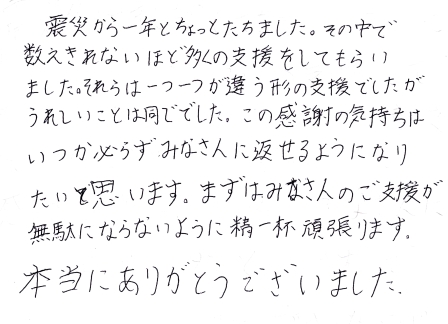 震災から一年とちょっとたちました。その中で
数えきれないほど多くの支援をしてもらい
ました。それらは一つ一つが違う形の支援でしたが
うれしいことは同ででした。この感謝の気持ちは
いつか必らずみなさんに返せるようになり
たいと思います。まずはみなさんのご支援が
無駄にならないように精一杯頑張ります。
本当にありがとうございました.